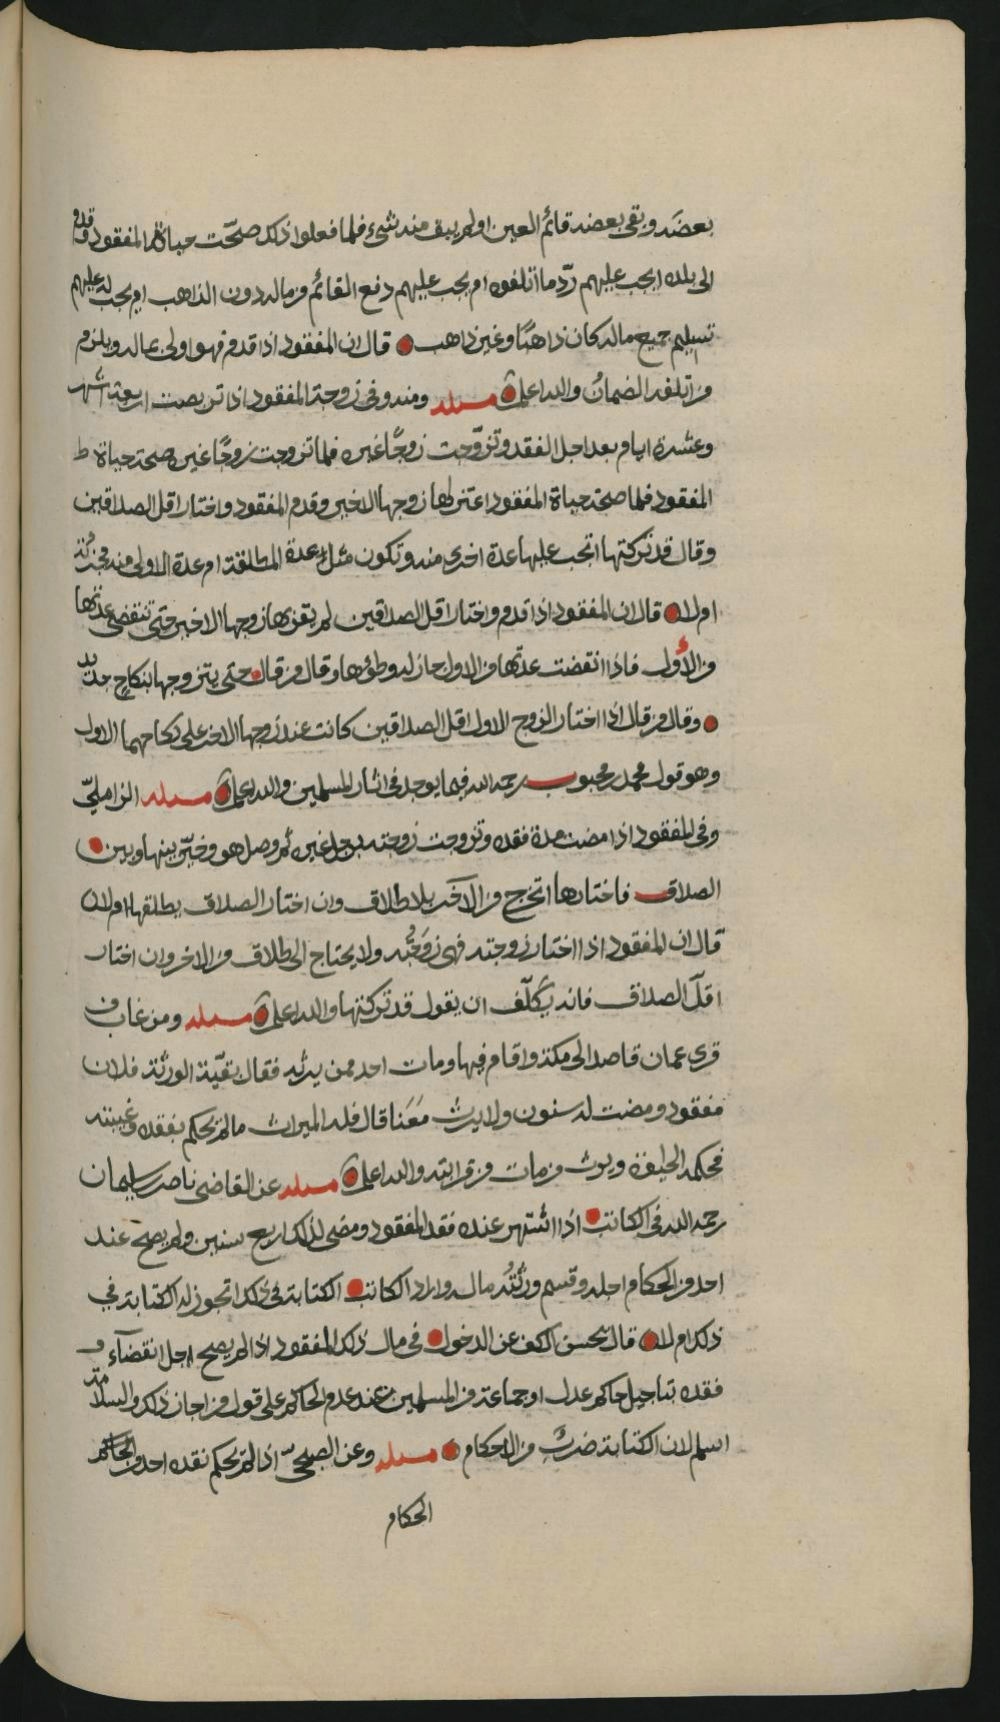 بعضَه وبقي بعضه قائم العين او لم يبق منه شيء فلما فعلوا ذلك صحّت حياة المفقود وقدم
الى بلده ايجب عليهم ردّ ما اتلفوه ام يجب عليهم دفع القائم من ماله دون الذاهب ام يجب له عليهم
تسليم جميع ماله كان ذاهبًا وغير ذاهب قال ان المفقود اذا قدم فهو اولى بماله ويلزم
من اتلفه الضمانُ والله اعلم مسئله ومنه وفي زوجة المفقود اذا تربصت اربعة اشهر
وعشرة ايام بعد اجل الفقد وتزوّجت زوجًا غيره فلما تزوجت زوجًا غيره صحة حياة
المفقود فلما صحة حياة المفقود اعتزلها زوجها الاخير وقدم المفقود واختار اقل الصداقين
وقال قد تركتها اتجب عليها عدة اخرى منه وتكون مثل عدة المطلقة ام عدة الاولى منه مجزئة
ام لا قال ان المفقود اذا قدم واختار اقل الصداقين لم يقربها زوجها الاخير حتى تنقضي عدتها
من الأول فاذا انقضت عدتها من الاول جاز له وطؤها وقال من قال حتى يتزوجها بنكاح جديد
وقال من قال اذا اختار الزوج الاول اقل الصداقين كانت عند زوجها الاخر على نكاحهما الاول
وهو قول محمد بن محبوب رحمه الله فيما يوجد في اثار المسلمين والله اعلم مسئله الزامليّ
وفي المفقود اذا مضت مدة فقده وتزوجت زوجته برجل غيره ثم وصل هو وخيّر بينها وبين
الصداق فاختارها اتخرج من الآخر بلا طلاق وان اختار الصداق يطلقها ام لا
قال ان المفقود اذا اختار زوجته فهي زوجتُه ولا يحتاج الى طلاق من الاخر وان اختار
اقلّ الصداق فانه يُكلّف ان يقول قد تركتها والله اعلم مسئله ومن غاب من
قرى عمان قاصدا الى مكة واقام فيها ومات احد ممن يرثه فقال بقيّة الورثة فلان
مفقود ومضت له سنون ولا يرث مَعَنا قال فله الميراث ما لم يحكم بفقده وغيبته
فحكمه الحيوة ويرث من مات من قرابته والله اعلم مسئله عن القاضي ناصر بن سليمان
رحمه الله في الكاتب اذا اشتهر عنده فقد المفقود ومضى لذلك اربع سنين ولم يصح عند
احد من الحكام اجله وقسم ورثتُه ماله واراد الكاتب الكتابة في ذلك اتجوز له الكتابة في
ذلك ام لا قال يحسن الكف عن الدخول في مال ذلك المفقود اذا لم يصح اجل انقضآء
فقده بتاجيل حاكم عدل او جماعة من المسلمين عند عدم الحاكم على قول من اجاز ذلك والسلامة
اسلم لان الكتابة ضرب من الاحكام مسئله وعن الصبحيّ اذا لم يحكم بفقده احد من الحاكم
الحكام